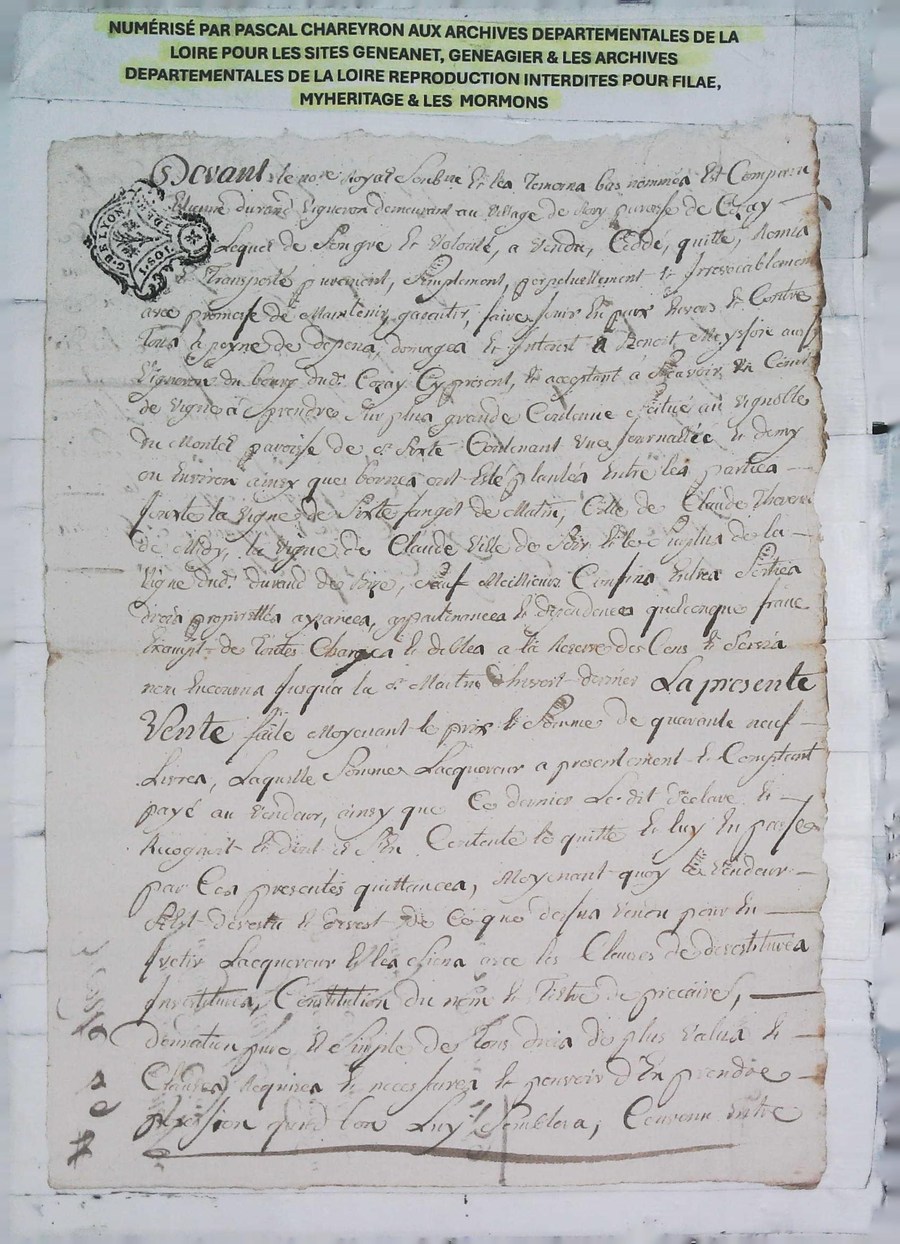 NUMÉRISÉ PAR PASCAL CHAREYRON AUX ARCHIVES DEPARTEMENTALES DE LA
LOIRE POUR LES SITES GENEANET, GENEAGIER & LES ARCHIVES
DEPARTEMENTALES DE LA LOIRE REPRODUCTION INTERDITES POUR FILAE,
MYHERITAGE & LES MORMONS
G. DE LYON
Devant le no.re Royal Soubné Et les Temoins bas nommés Est Comparu
Etienne durand Vigneron demeurant au village de paroisse de Cezay
Lequel de Son gre Et Volonté, a Vendu, Ceddé, quitté, Remis
Transporté purement, Simplement, perpetuellement Et Irrevocablement
avec promesse de Maintenir, garentir, faire Jouir En paix Envers Et Contre
Tous a peyne de depens, domages Et Interest A Benoit aussy
Vigneron du bourg dud. Cezay Cy present, Et acceptant a Scavoir Un Coint
de Vigne à prendre Sur plus grande Contenue Scitué au Vignoble
du Montel paroisse de St Sixte Contenant Une Journallée Et demy
ou Environ ainsy que bornes ont Esté plantés Entre les parties
Jouxte la Vigne de Sixte de Matin, Celle de Claude
de Midy, la Vigne de Claude Ville de Soir Et le Surplus de la
Vigne dud. durand de bize, Sauf Meilleurs Confins Entrés Sorties
droits proprietés ayzances, appartenances Et dependences quelconque franc
Exampt de Toutes Charges Et debtes a la Reserve des Cens Et Servis
non Encourus Jusqua la St Martin d'hivert dernier La presente
Vente faite Moyenant le prix Et Somme de quarante neuf
Livres, Laquelle Somme Lacquereur a presentement Et Comptant
payé au Vendeur, ainsy que Ce dernier Le dit déclare Et
Recognoit Et dont Il S'En Contente le quitte Et luy En passe
par Ces presentes quittances, Moyenant quoy le Vendeur
S'Est devestu Et devest de Ce que dessus Vendu pour En
Jvetir Lacquereur Et les Siens avec les Clauses de devestitures
Investitures, Constitution du nom Et Tittre de precaires,
donnation pure Et Simple de Tous droits de plus Values Et
Clauses Requises Et necessaires Et pouvoir d'En prendre
possession quand bon Luy Semblera, Convenu Entre